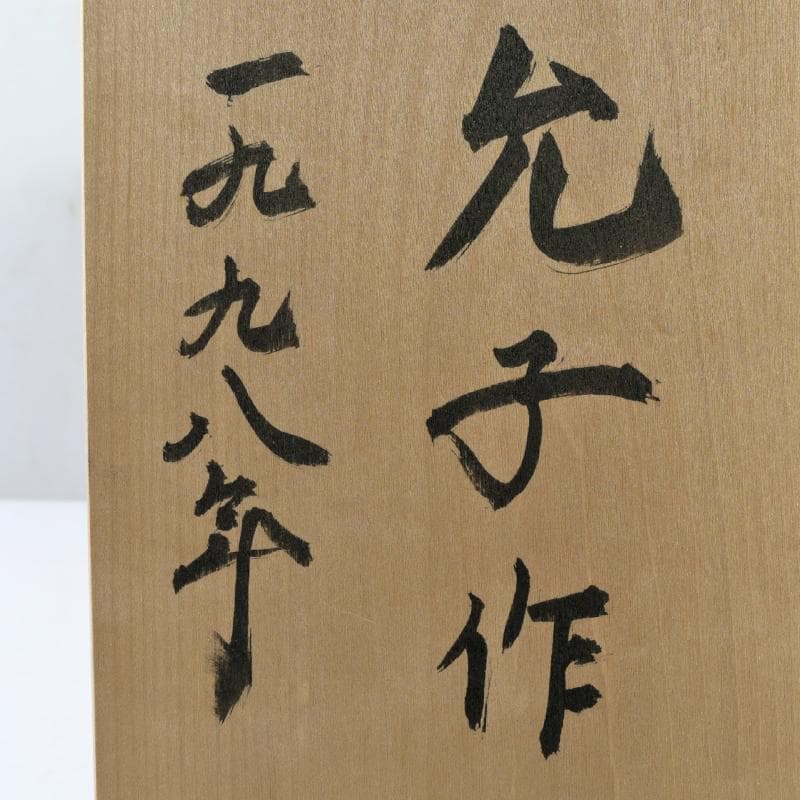 允子作
一九九八年